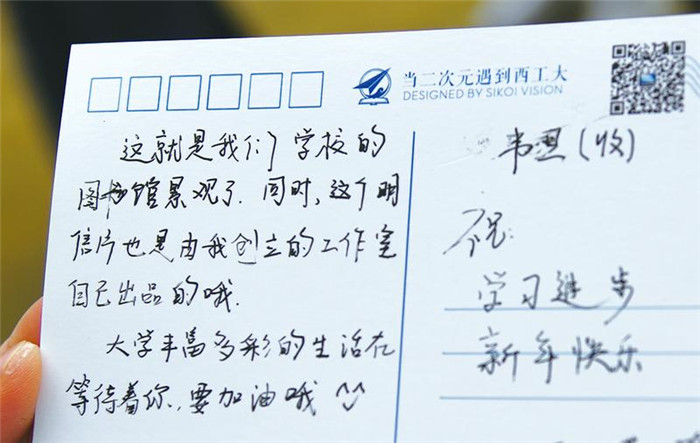 当二次元遇到西工大
DESIGNED BY SIKOI VISION
这就是我们学校的
图书馆景观了.同时,这个明
信片也是由我创立的工作室
自己出品的哦.
大学丰富多彩的生活在
等待着你,要加油哦
韦思(收)
祝:
学习进步
新年快乐